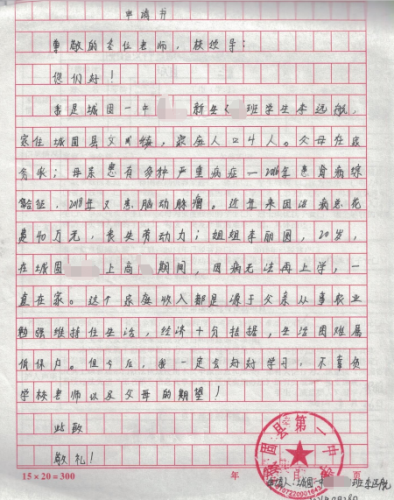 申请书
尊敬的各位老师,校领导:
您们好!
我是城固一中 新生 班学生李远航,
家住城固县文川镇,家庭人口4人。父母在家
务农;母亲患有多种严重病症—2016年患肾病综
合征,2018年又患脑动脉瘤。这些年来因治病总花
费40万元,丧失劳动力;姐姐李丽园,20岁,
在城固 上高 期间,因病无法再上学,一
直在家。这个家庭收入都是源于父亲从事农业
勉强维持住生活,经济十分拮据,生活困难属
低保户。但今后,我一定会好好学习,不辜负
学校老师以及父母的期望!
此致
敬礼!
固县第一中
15×20=300 年 月 日 页
申请人:城固 班李远航